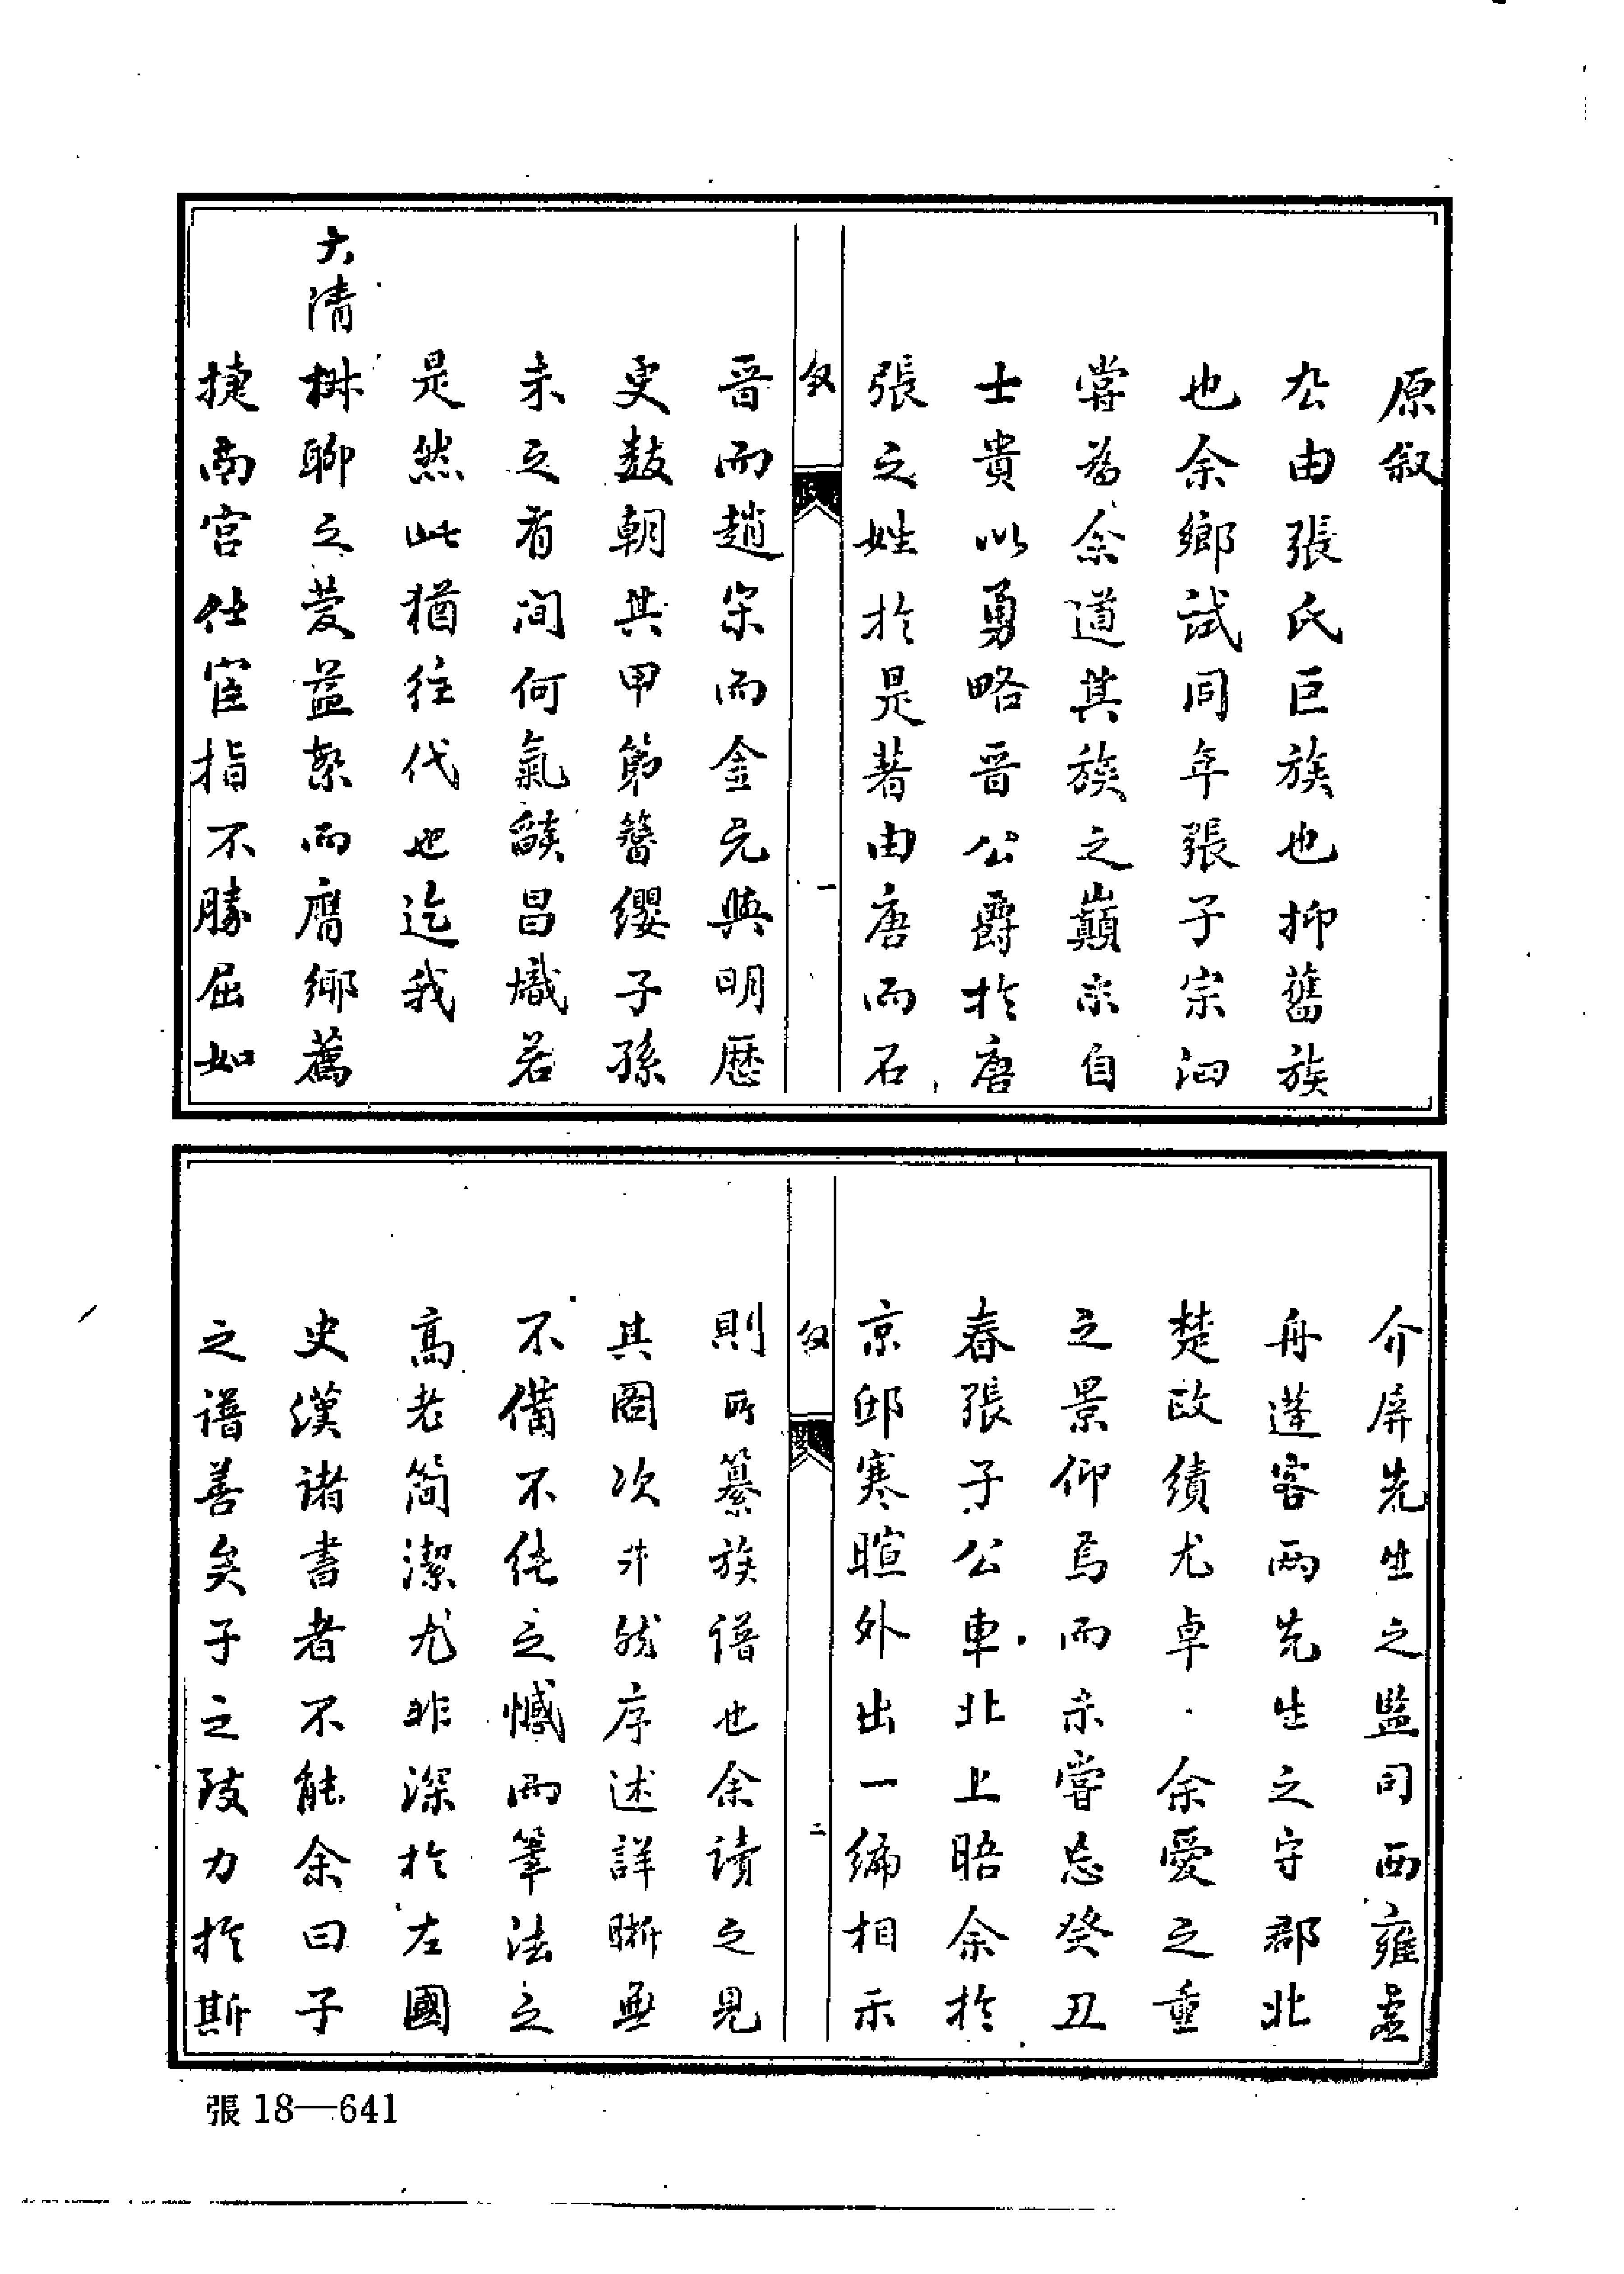 原叙
厹由張氏巨族也抑舊族
也余鄉試同年張子宗泗
嘗為余道其族之巔末自
士貴以勇略晉公爵於唐
張之姓於是著由唐而石
叙
一
晉而趙宋而金元與明歷
更數朝其甲第簪纓子孫
未之有間何氣燄昌熾若
是然此猶往代也迄我
大清椒聊之蔓益繁而膺鄉薦
捷南宮仕宦指不勝屈如
介屏先生之監司西雍虛
舟蓮客兩先生之守郡北
楚政績尤卓余愛之重
之景仰焉而未嘗忘癸丑
春張子公車北上晤余於
京邸寒暄外出一編相示
叙
二
則所纂族譜也余讀之見
其圖次井然序述詳晰無
不備不佳之憾而筆法之
高老簡潔尤非深於左國
史漢諸書者不能余曰子
之譜善矣子之致力於斯
張18—641